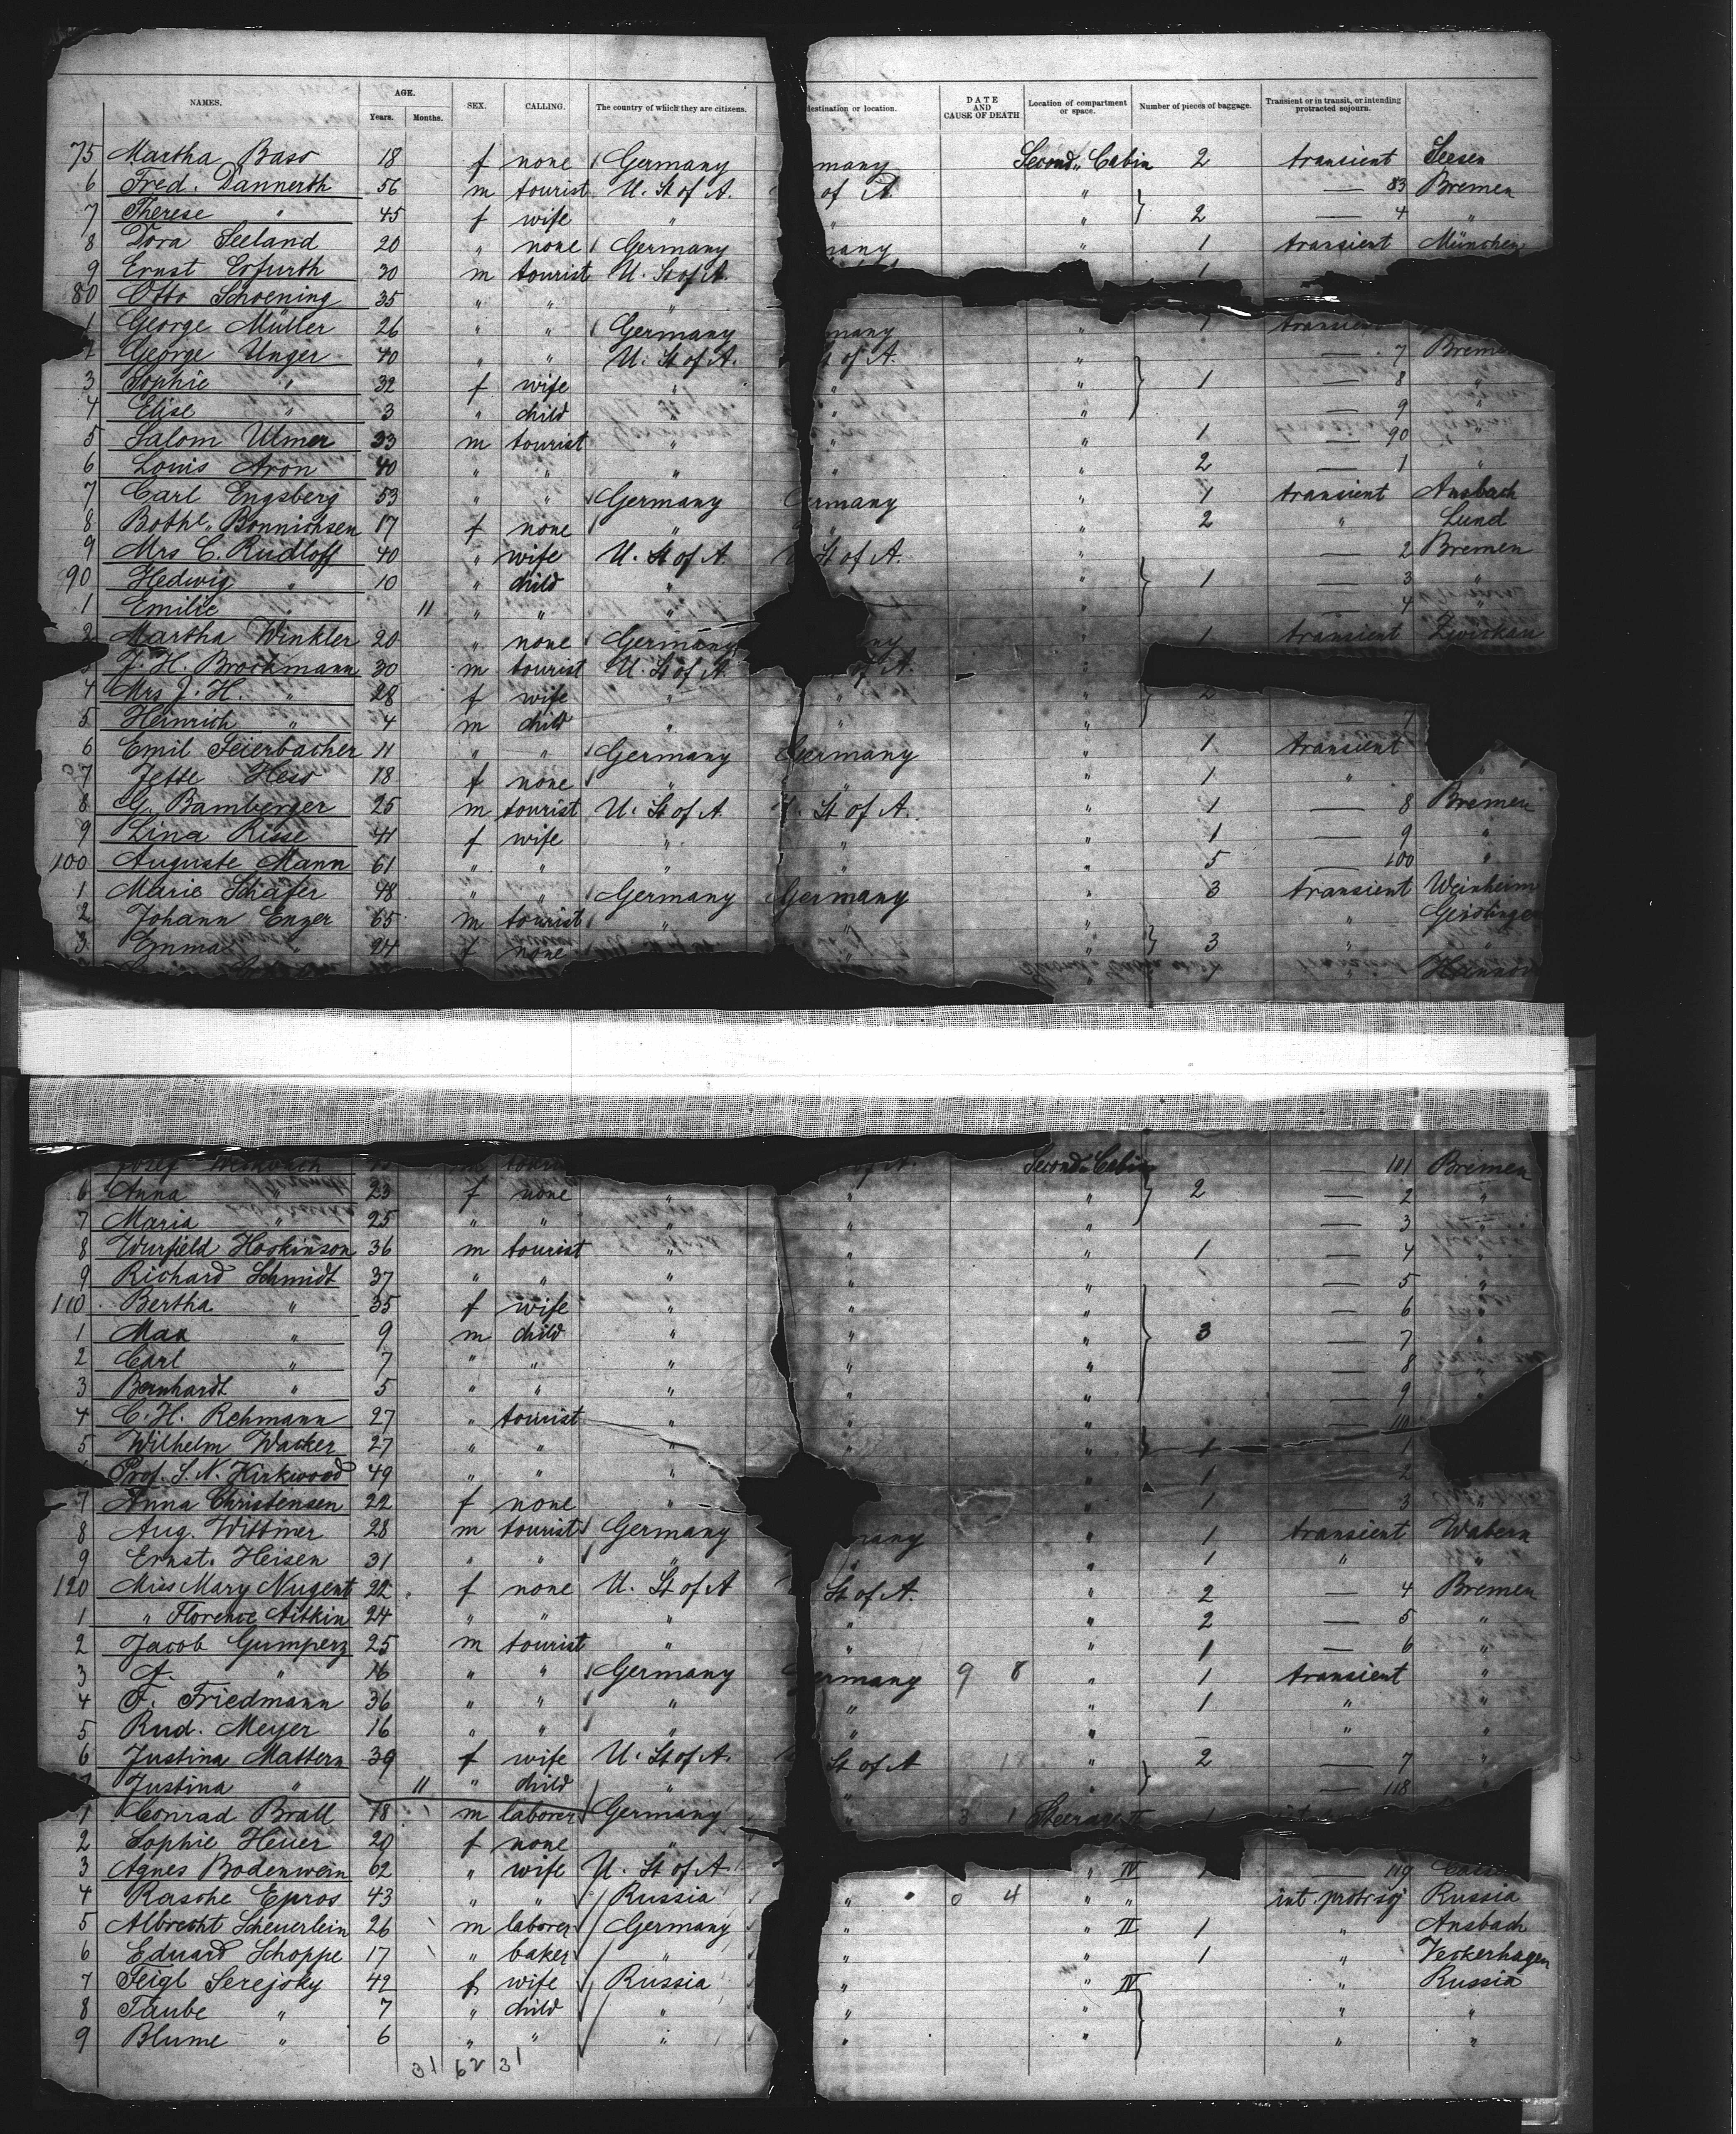 NAMES. AGE. SEX. CALLING. The country of which they are citizens. destination or location. DATE AND CAUSE OF DEATH Location of compartment or space. Number of pieces of baggage. Transient or in transit, or intending protracted sojourn.
Years. Months.
75 Martha Bass 18 f none Germany many Second Cabin 2 transient Seesen
6 Fred. Dannerth 56 m tourist U. St of A. of A. " — 83 Bremen
7 Therese " 45 f wife " " " 2 — 4 "
8 Dora Seeland 20 " none Germany many " 1 transient München
9 Ernst Erfurth 30 m tourist U. St of A. 1
80 Otto Schoening 35 " " "
1 George Müller 26 " " Germany many " 1 transient
2 George Unger 40 " " U. St of A. of A. " — 7 Bremen
3 Sophie " 32 f wife " " " 1 — 8 "
4 Elise " 3 " child " " " — 9 "
5 Salom Ulmer 33 m tourist " " " 1 — 90 "
6 Louis Aron 40 " " " " " 2 — 1 "
7 Carl Engsberg 53 " " Germany Germany " 1 transient Ansbach
8 Bothe Bonnichsen 17 f none " " " 2 " Lund
9 Mrs C. Rudloff 40 " wife U. St of A. St of A. " — 2 Bremen
90 Hedwig " 10 " child " " " 1 — 3 "
1 Emilie " 11 " " " " — 4 "
2 Martha Winkler 20 " none Germany many " 1 transient Zwickau
J. H. Brockmann 30 m tourist U. St of A. of A.
4 Mrs J. H. " 28 f wife " " " 2
5 Heinrich " 4 m child " " " — 7
6 Emil Feierbacher 11 " " Germany Germany " 1 transient
7 Jette Hess 18 f none " " " 1 " "
8 G. Bamberger 25 m tourist U. St of A. St of A. " 1 — 8 Bremen
9 Lina Riese 41 f wife " " " 1 — 9 "
100 Auguste Mann 61 " " " " " 5 — 100 "
1 Marie Schäfer 48 " " Germany Germany " 3 transient Weinheim
2 Johann Enzer 65 m tourist " " " " Geislingen
3 Emma " 24 f none " " 3 " "
1 " Hannov
Josef 101 Second Cabin — 101 Bremen
6 Anna " 23 f none " " " 2 — 2 "
7 Maria " 25 " " " " " — 3 "
8 Wurfield Hoskinson 36 m tourist " " " 1 — 4 "
9 Richard Schmidt 37 " " " " " — 5 "
110 Bertha " 35 f wife " " " — 6 "
1 Max " 9 m child " " " 3 — 7 "
2 Carl " 7 " " " " " — 8 "
3 Bernhardt " 5 " " " " " — 9 "
4 C. H. Rehmann 27 " tourist " " " — 110
5 Wilhelm Wacker 27 " " " " " 1 — 1
Prof. S. N. Kirkwood 49 " " " " 1 — 2
7 Anna Christensen 22 f none " " 1 — 3 "
8 Aug. Wittmer 28 m tourist Germany many " 1 transient Wabern
9 Ernst. Heisen 31 " " " " 1 " "
120 Miss Mary Nugent 22 f none U. St of A St of A. " 2 — 4 Bremen
1 " Florence Aitkin 24 " " " " " 2 — 5 "
2 Jacob Gumperz 25 m tourist " " " 1 — 6 "
3 A. " 16 " " Germany Germany 9 8 " 1 transient "
4 F. Friedmann 36 " " " " " 1 " "
5 Rud. Meyer 16 " " " " " — " "
6 Justina Mattern 39 f wife U. St of A. St of A 18 " 2 — 7 "
Justina " 11 " child " " — 118 "
1 Conrad Brall 18 m laborer Germany " 3 1 Steerage II 1
2 Sophie Heuer 20 f none "
3 Agnes Bodenwein 62 " wife U. St of A " IV 1 119
4 Rasche Epros 43 " " Russia " 0 4 " " int. protr soj Russia
5 Albrecht Scheuerlein 26 m laborer Germany " " II 1 " Ansbach
6 Eduard Schoppe 17 " baker " " " 1 " Veckerhagen
7 Feigl Serejsky 42 f wife Russia " " IV " Russia
8 Taube " 7 " child " " " " "
9 Blume " 6 " " " " " " "
31 62 31